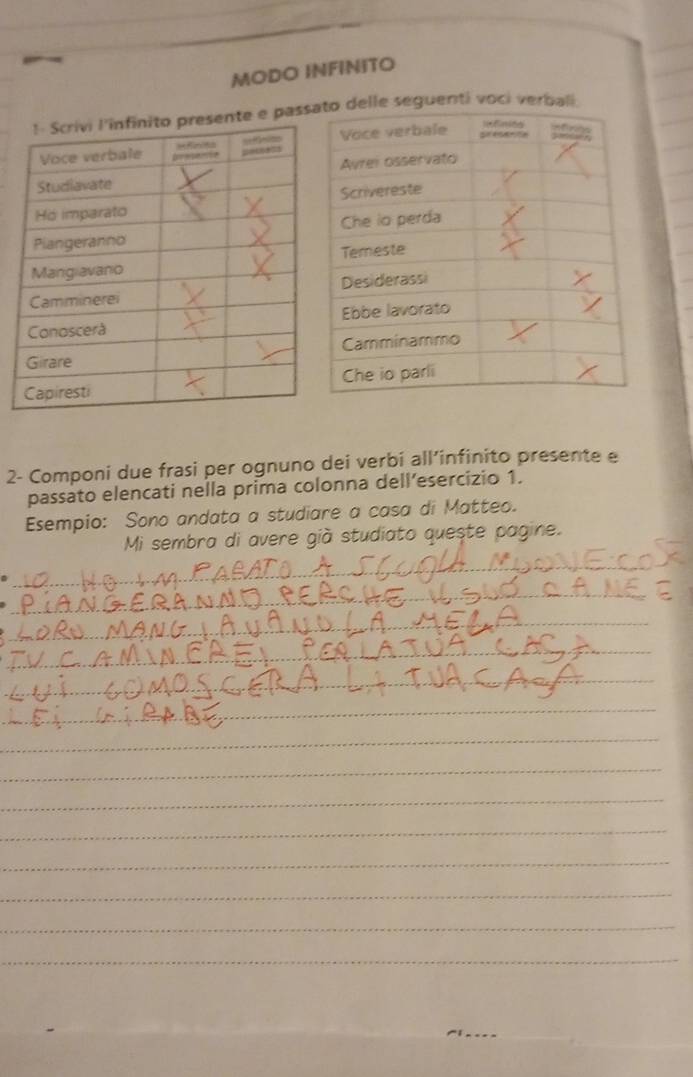 MODO INFINITO
1- Scrivi l'infinito presente e passato delle seguenti voci verbali.
Voce verbale infinito presente infinito passato
Studiavate X
Ho imparato X X
Piangeranno X
Mangiavano X
Camminerei X
Conoscerà X
Girare X
Capiresti X
Voce verbale infinito presente infinito passato
Avrei osservato X
Scrivereste X
Che io perda X
Temeste X
Desiderassi X
Ebbe lavorato X
Camminammo X
Che io parli X
2- Componi due frasi per ognuno dei verbi all'infinito presente e
passato elencati nella prima colonna dell'esercizio 1.
Esempio: Sono andata a studiare a casa di Matteo.
Mi sembra di avere già studiato queste pagine.
IO HO IMPARATO A SCUOLA NUOVE COSE
PIANGERANNO PERCHE IL SUO CANE E
LORO MANGIAVANO LA MELA
TU CAMINEREI PER LA TUA CASA
LUI COMOSCERA LA TUA CASA
LEI GIRARE